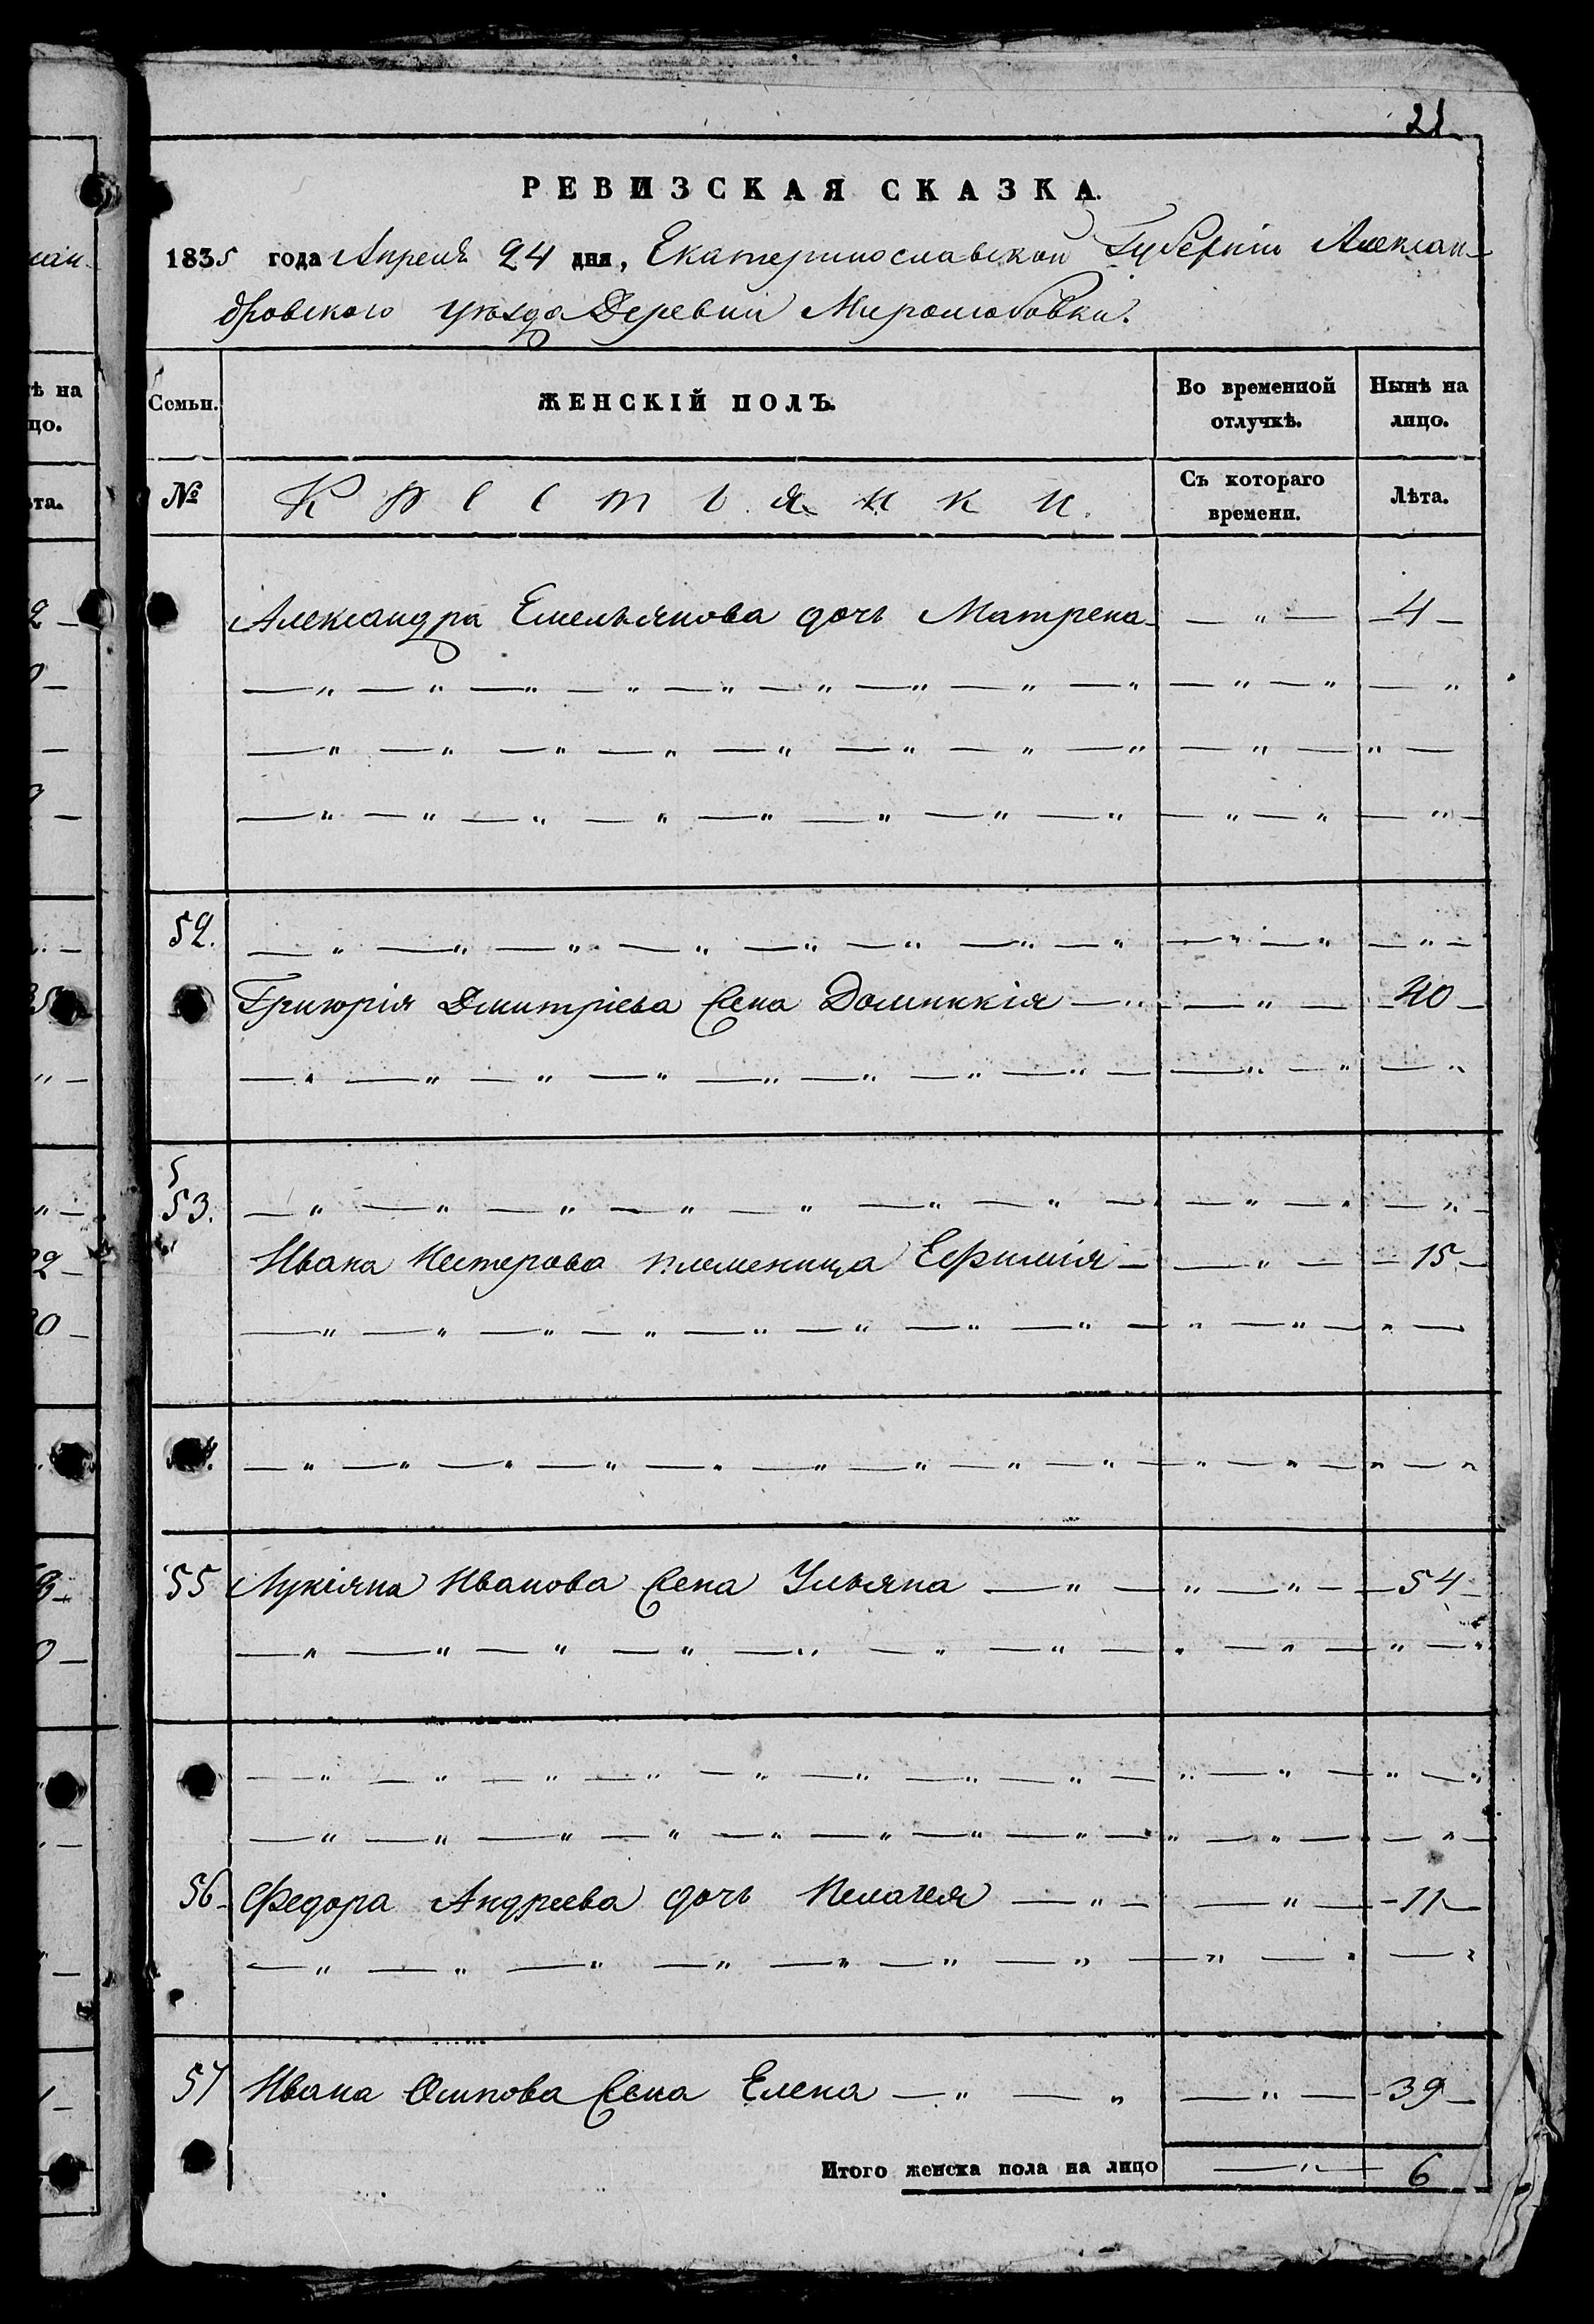 21
РЕВИЗСКАЯ СКАЗКА.
1835 года Апреля 24 дня, Екатеринославской Губернїи Алексан-
дровского уѣзда Деревни Миролюбовки.
Семьи. ЖЕНСКІЙ ПОЛЪ. Во временной отлучкѣ. Нынѣ на лицо.
№ Крестьянки. Съ котораго времени. Лѣта.
Александра Емельянова дочь Матрена — " — 4 —
— " — " — " — " — " — " — " — " — " — " — " — "
— " — " — " — " — " — " — " — " — " — " —
— " — " — " — " — " — " — " — " — " — " — " —
52. — " — " — " — " — " — " — " — " — " — " — " —
Григорія Дмитріева жена Домникія — " — " — 20 —
— " — " — " — " — " — " — " — " — — " — " — "
53. — " — " — " — " — " — " — " — — " — " — " —
Ивана Нестерова племеница Ефимія — — " — 15 —
— " — " — " — " — " — " — " — " — " — " — " —
— " — " — " — " — " — " — " — " — " — " — " — " — "
55 Лукіяна Иванова жена Ульяна — " — " — " — 54 —
— " — " — " — " — " — " — " — " — " — " — "
— " — " — " — " — " — " — " — " — " — " — " — "
— " — " — " — " — " — " — " — " — " — " — — " —
56 Федора Андреева дочь Пелагея — " — — " — 11 —
— " — " — " — " — " — " — " — " — " — "
57 Ивана Осипова жена Елена — " — " — " — 39 —
Итого женска пола на лицо — " — 6